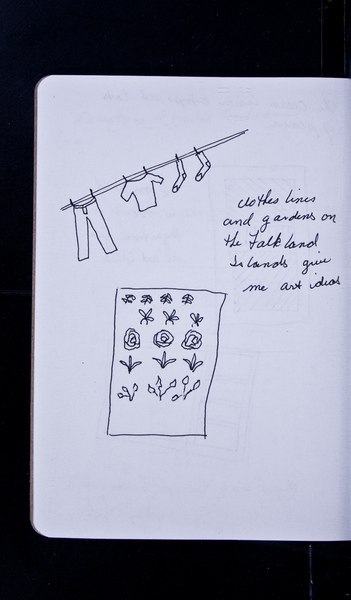 clothes lines
and gardens on
the Falkland
Islands give
me art ideas